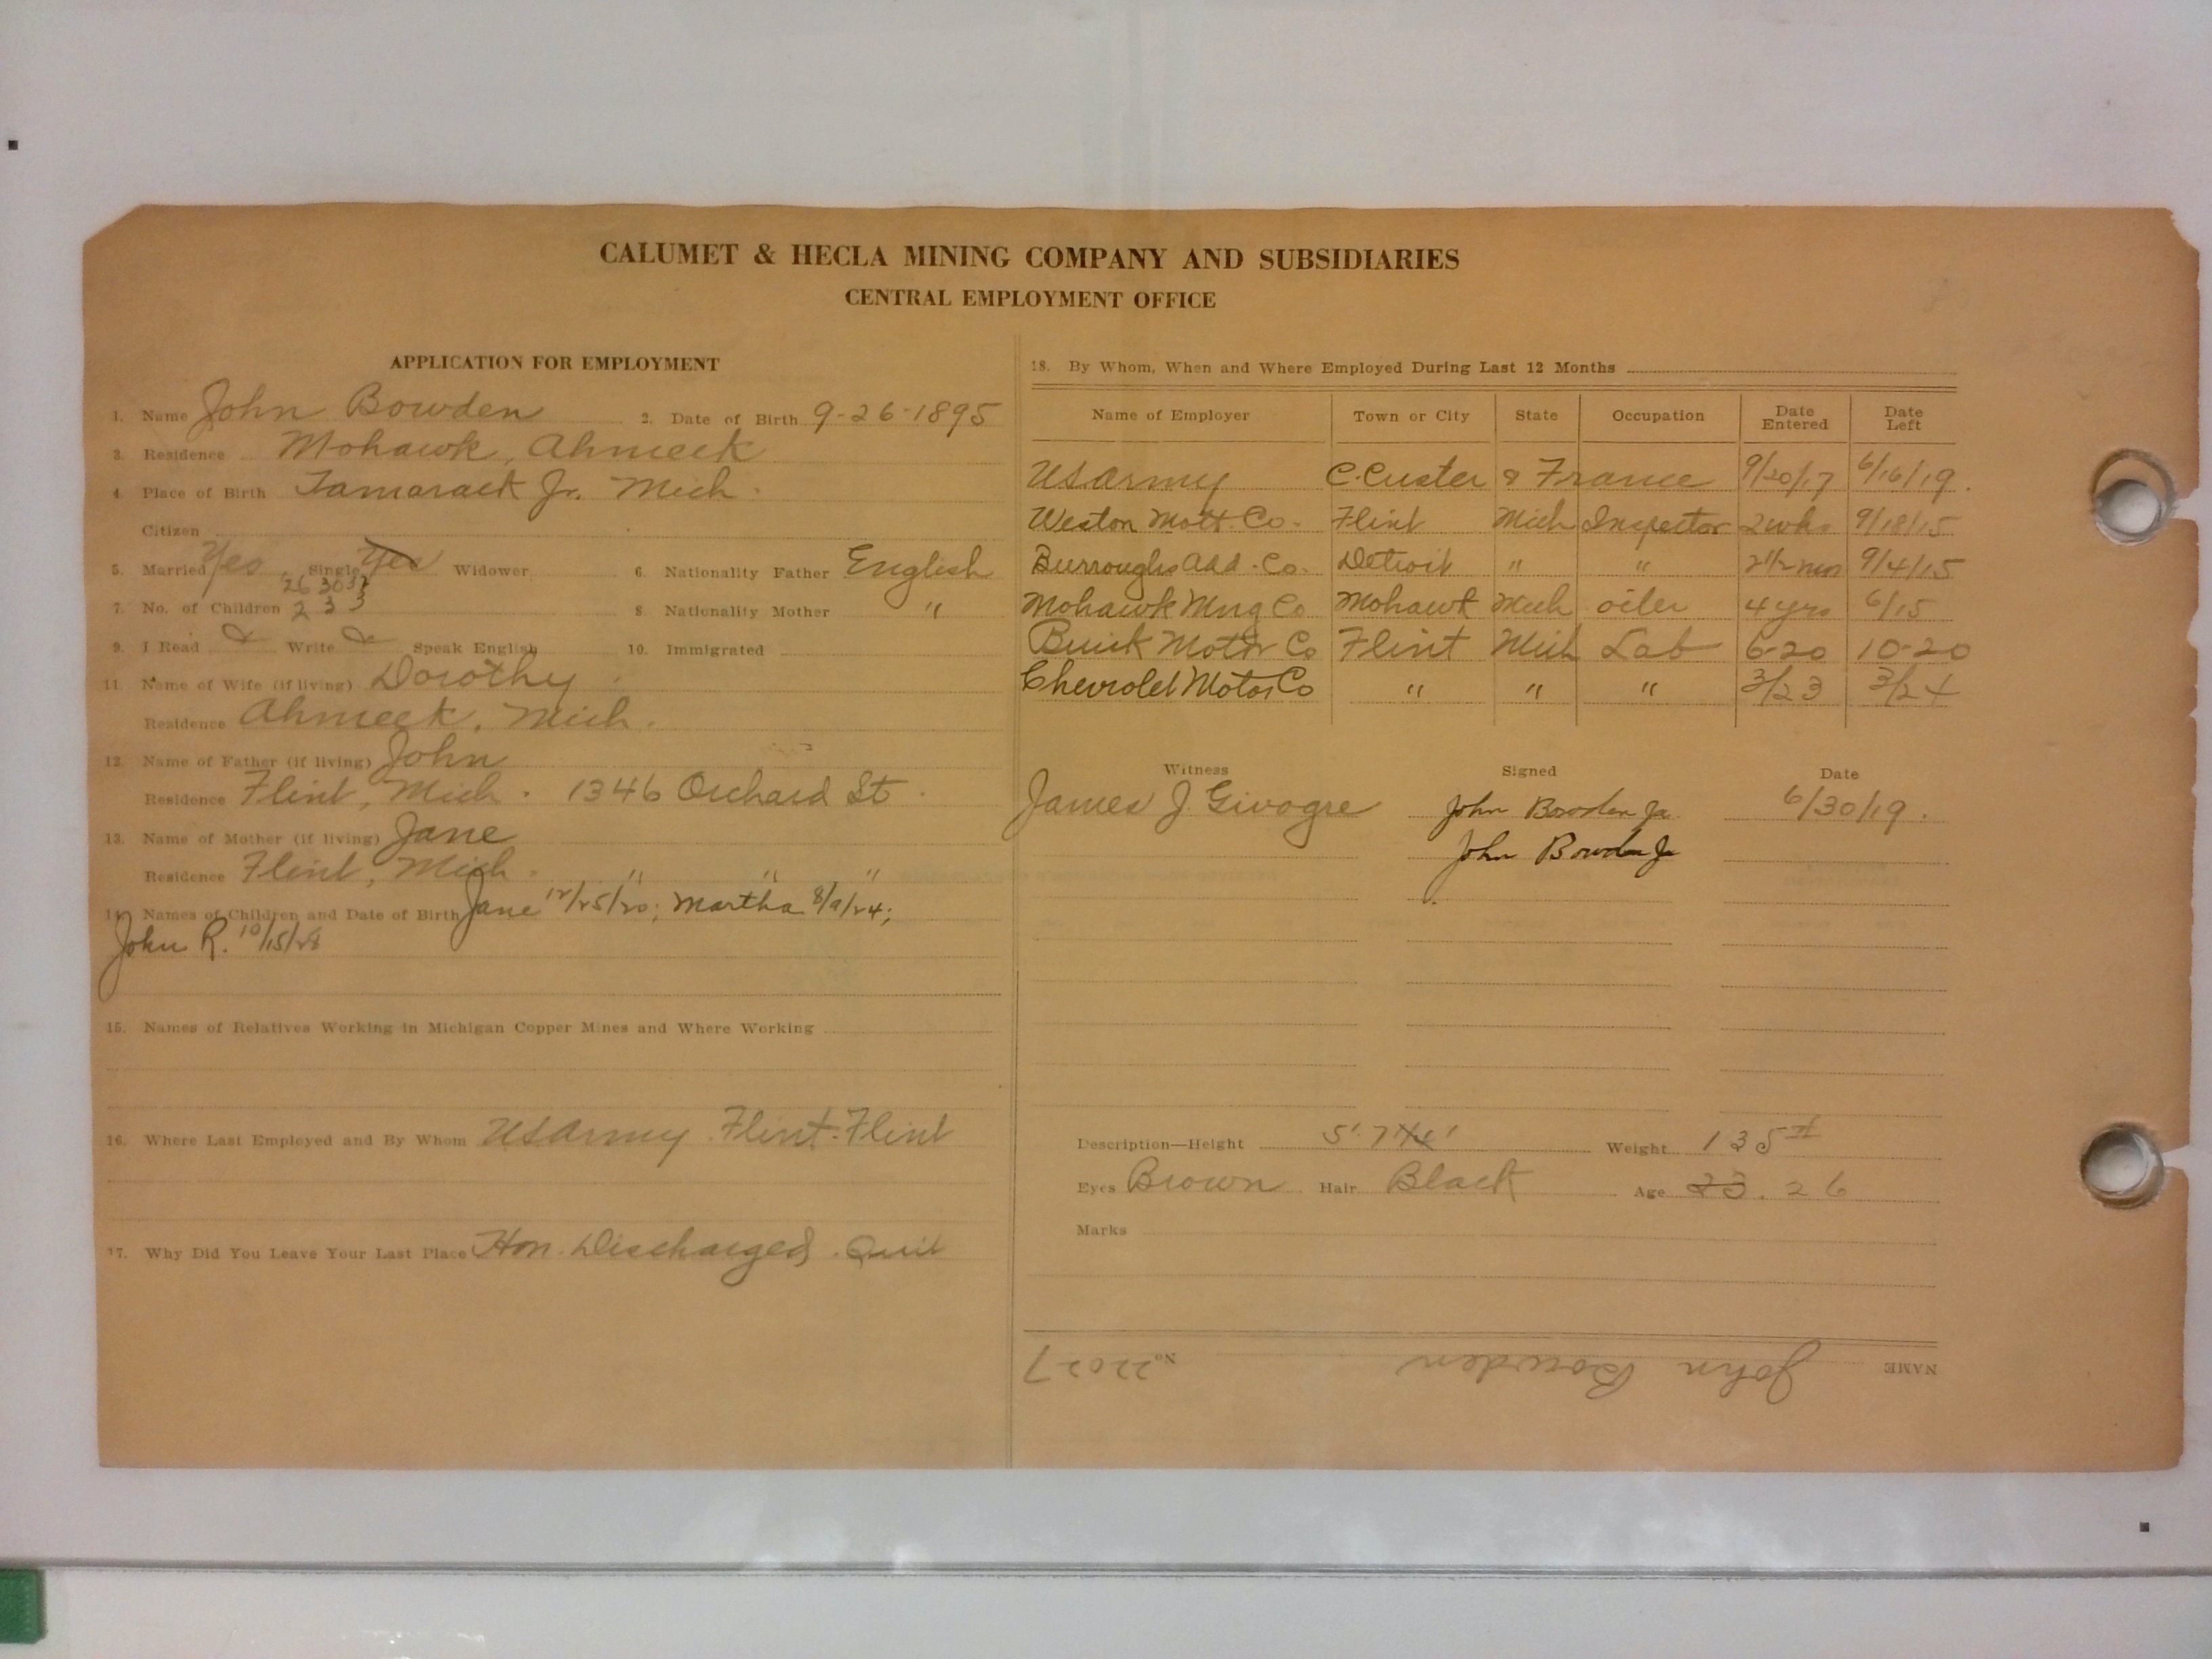 CALUMET & HECLA MINING COMPANY AND SUBSIDIARIES
CENTRAL EMPLOYMENT OFFICE
APPLICATION FOR EMPLOYMENT
1. Name John Bowden 2. Date of Birth 9-26-1895
3. Residence Mohawk, Ahmeek
4. Place of Birth Tamarack Jr. Mich.
Citizen
5. Married Yes Single Yes Widower 6. Nationality Father English
26 30 37
7. No. of Children 2 3 3 8. Nationality Mother "
9. I Read & Write & Speak English 10. Immigrated
11. Name of Wife (if living) Dorothy
Residence Ahmeek, Mich.
12. Name of Father (if living) John
Residence Flint, Mich. 1346 Orchard St.
13. Name of Mother (if living) Jane
Residence Flint, Mich. " " "
14. Names of Children and Date of Birth Jane 12/25/20; Martha 8/9/24;
John R. 10/15/28
15. Names of Relatives Working in Michigan Copper Mines and Where Working
16. Where Last Employed and By Whom US Army. Flint-Flint
17. Why Did You Leave Your Last Place Hon. Discharged. Quit
18. By Whom, When and Where Employed During Last 12 Months
Name of Employer Town or City State Occupation Date Entered Date Left
US Army C. Custer & France 9/20/17 6/16/19.
Weston Mott Co. Flint Mich Inspector 2 wks 9/18/15
Burroughs Add. Co. Detroit " " 2 1/2 mos 9/4/15
Mohawk Mng Co Mohawk Mich oiler 4 yrs 6/15
Buick Motor Co Flint Mich Lab 6-20 10-20
Chevrolet Motor Co " " " 3/23 3/24
Witness Signed Date
James J. Givogre John Bowden Jr. 6/30/19.
John Bowden Jr
Description—Height 5' 7 1/4" Weight 135 #
Eyes Brown Hair Black Age 23. 26
Marks
NAME John Bowden No. 22027